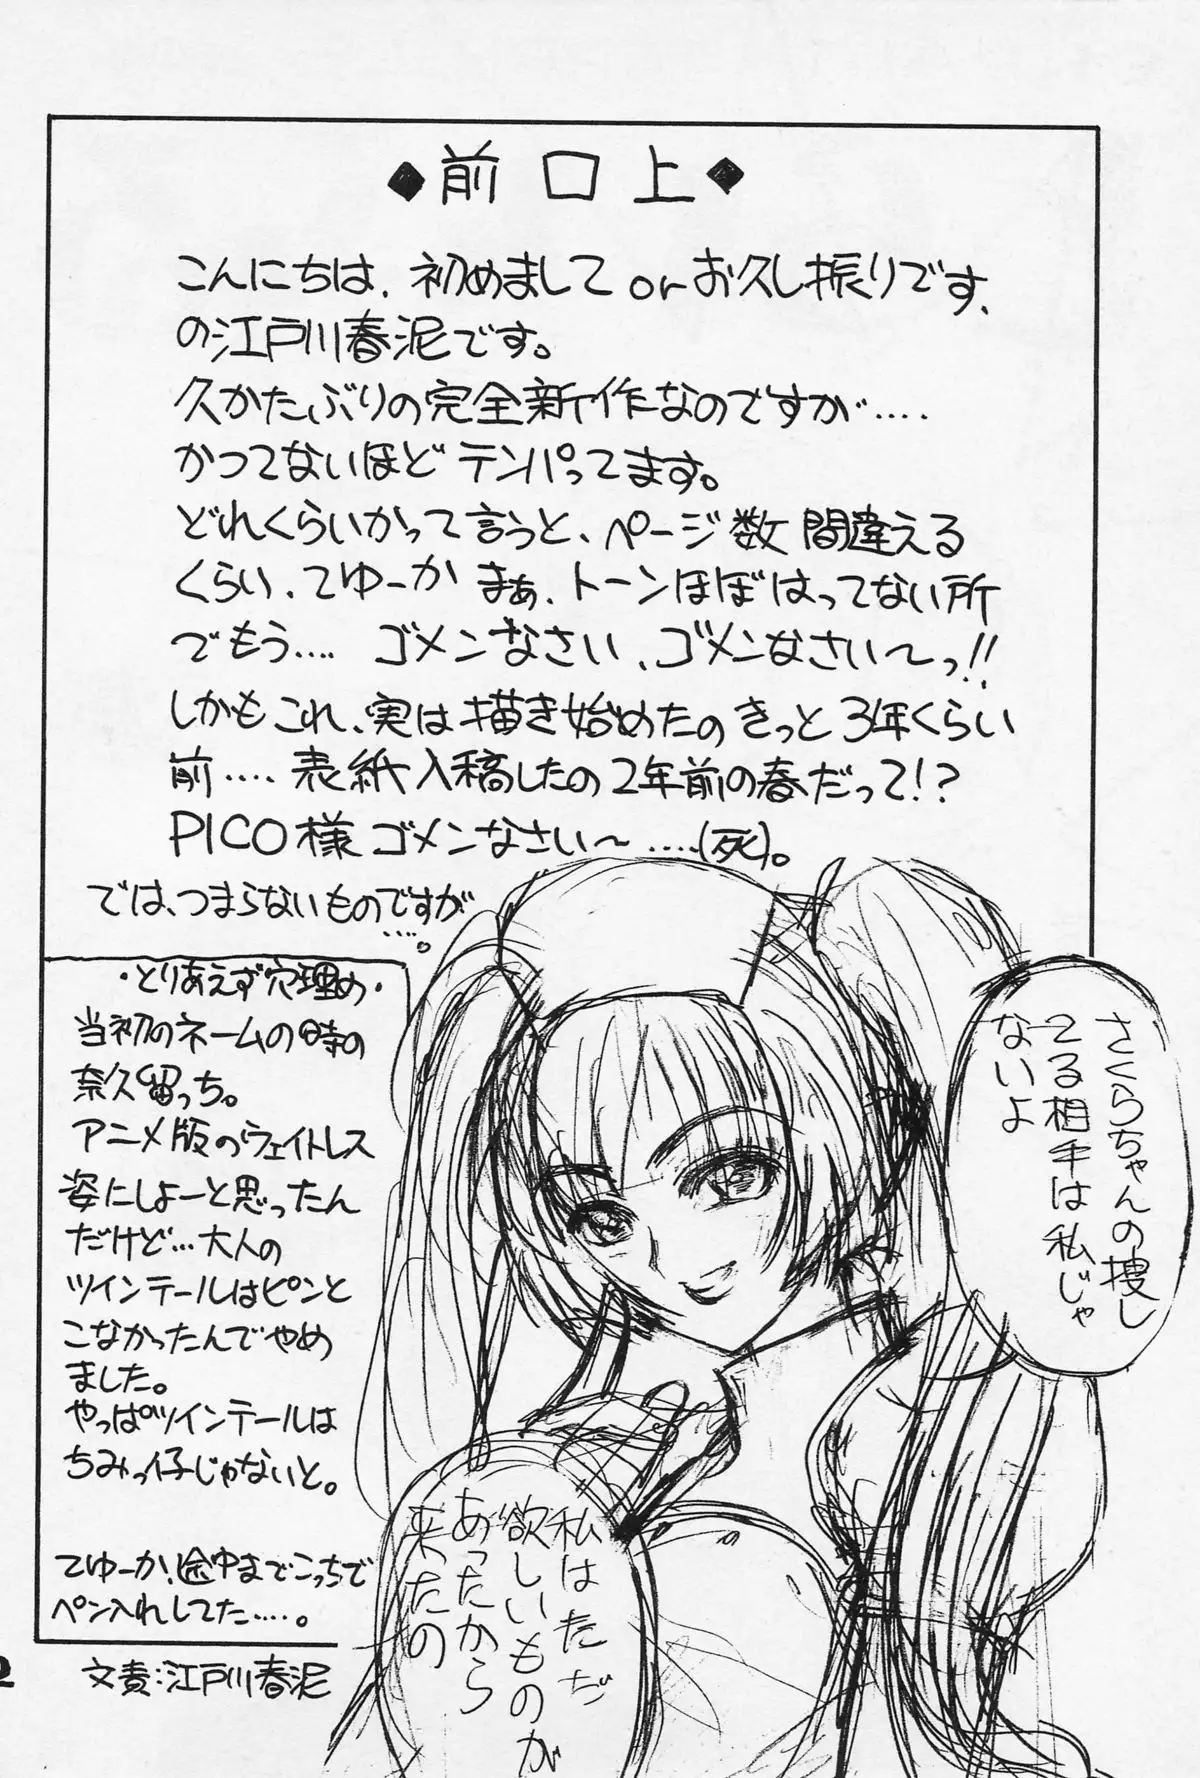 ◆前口上◆
こんにちは、初めまして or お久し振りです、
の江戸川春泥です。
久かたぶりの完全新作なのですが‥‥
かつてないほどテンパってます。
どれくらいかって言うと、ページ数間違える
くらい、てゆーか まぁ、トーンほぼはってない所
でもう‥‥ ゴメンなさい、ゴメンなさい〜っ!!
しかもこれ、実は描き始めたのきっと3年くらい
前‥‥表紙入稿したの2年前の春だって!?
PICO様ゴメンなさい〜‥‥(死)。
では、つまらないものですが
‥‥。
・とりあえず穴埋め・
当初のネームの時の
奈久留っち。
アニメ版のウェイトレス
姿にしよーと思ったん
だけど…大人の
ツインテールはピンと
こなかったんでやめ
ました。
やっぱツインテールは
ちみっ子じゃないと。
てゆーか、途中までこっちで
ペン入れしてた‥‥。
さくらちゃんの捜し
てる相手は私じゃ
ないよ
私はただ
欲しいものが
あったから
来たの
文責:江戸川春泥
2